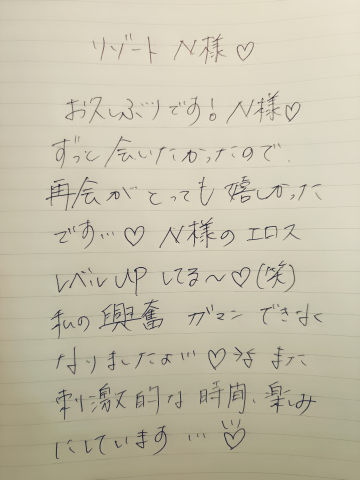 リゾート N様♡
お久しぶりです! N様♡
ずっと会いたかったので、
再会がとっても嬉しかった
です…♡ N様のエロス
レベルUPしてる〜♡(笑)
私の興奮 ガマンできなく
なりましたよ…♡ また
刺激的な時間、楽しみ
にしています…♡